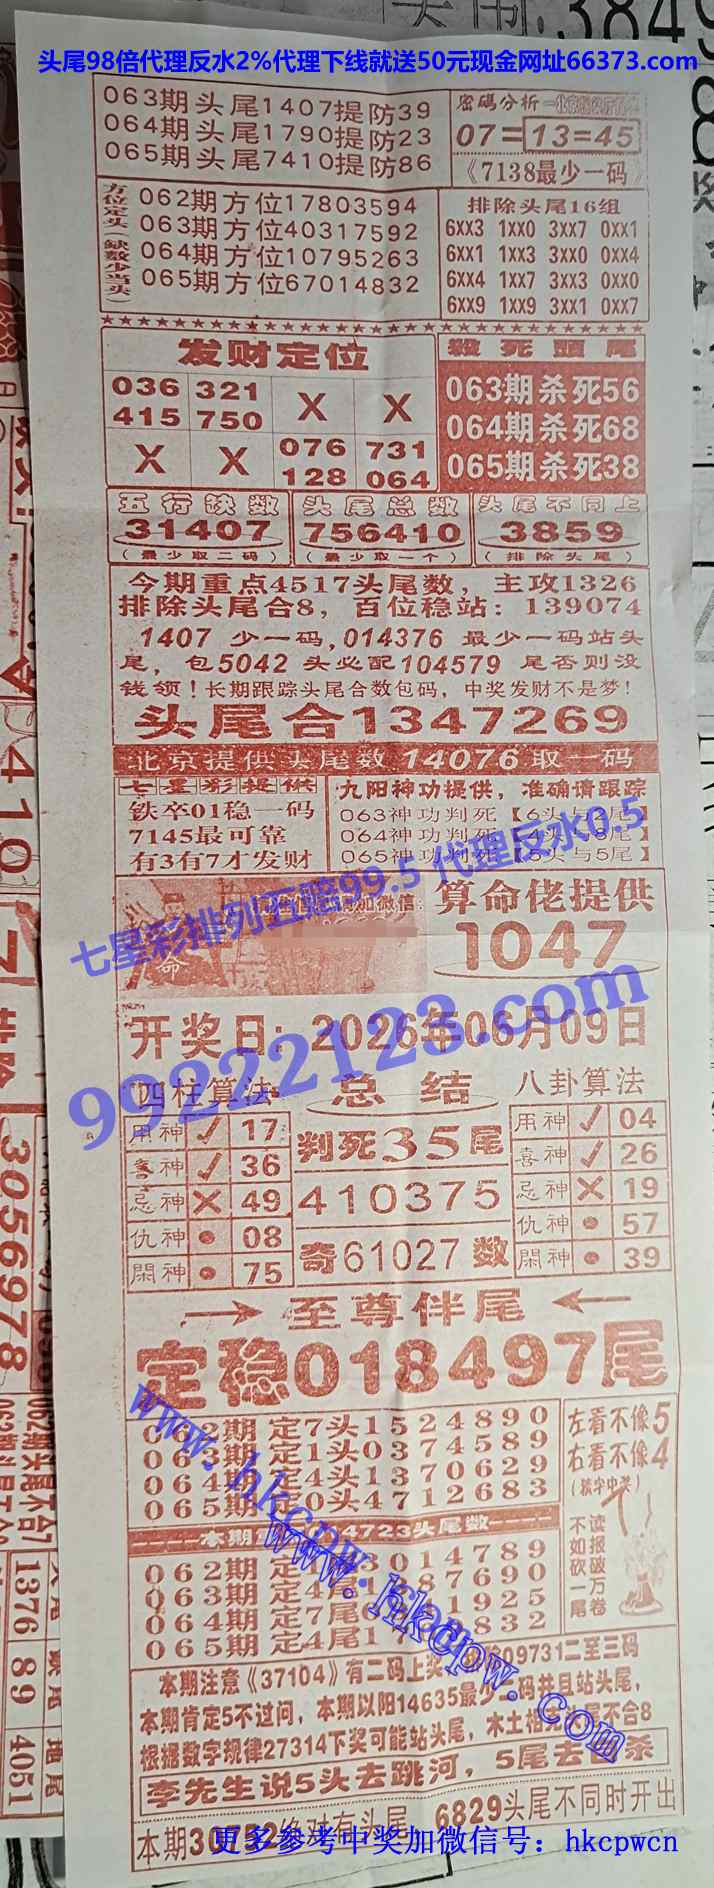 头尾98倍代理反水2%代理下线就送50元现金网址66373.com
063期头尾1407提防39
064期头尾1790提防23
065期头尾7410提防86
密码分析
07=13=45
《7138最少一码》
方位定头(缺数少当头)
062期方位17803594
063期方位40317592
064期方位10795263
065期方位67014832
排除头尾16组
6XX3 1XX0 3XX7 0XX1
6XX1 1XX3 3XX0 0XX4
6XX4 1XX7 3XX3 0XX0
6XX9 1XX9 3XX1 0XX7
发财定位
036 321 X X
415 750
X X 076 731
128 064
殺死頭尾
063期杀死56
064期杀死68
065期杀死38
五行缺数
31407
(最少取二码)
头尾总数
756410
(最少取一个)
头尾不同上
3859
(排除头尾)
今期重点4517头尾数，主攻1326
排除头尾合8，百位稳站：139074
1407 少一码,014376 最少一码站头
尾，包5042 头必配104579 尾否则没
钱领！长期跟踪头尾合数包码，中奖发财不是梦！
头尾合1347269
北京提供头尾数14076取一码
七星彩提供
铁卒01稳一码
7145最可靠
有3有7才发财
九阳神功提供，准确请跟踪
063神功判死【6头与2尾】
064神功判死【4头与8尾】
065神功判死【5头与5尾】
七星彩排列五赔99.5 代理反水0.5
加微信:
算命佬提供
1047
开奖日：2026年06月09日
99222123.com
四柱算法
用神 ✓ 17
喜神 ✓ 36
忌神 X 49
仇神 • 08
閑神 • 75
总结
判死35尾
410375
奇61027数
八卦算法
用神 ✓ 04
喜神 ✓ 26
忌神 X 19
仇神 • 57
閑神 • 39
至尊伴尾
定稳018497尾
062期定7头1524890
063期定1头0374589
064期定4头1370629
065期定0头4712683
左看不像5
右看不像4
(猜字中奖)
读报破万卷
不如砍一尾
本期 4723头尾数
062期定 3014789
063期定4尾1 87690
064期定7尾 1925
065期定4尾1 832
www.hkcpw.com
www.hkcpw.com
本期注意《37104》有二码上奖， 09731二至三码
本期肯定5不过问，本期以阳14635最少一码并且站头尾，
根据数字规律27314下奖可能站头尾，木土相 头尾不合8
李先生说5头去跳河，5尾去 杀
本期30752绝对有头尾 6829头尾不同时开出
更多参考中奖加微信号：hkcpwcn